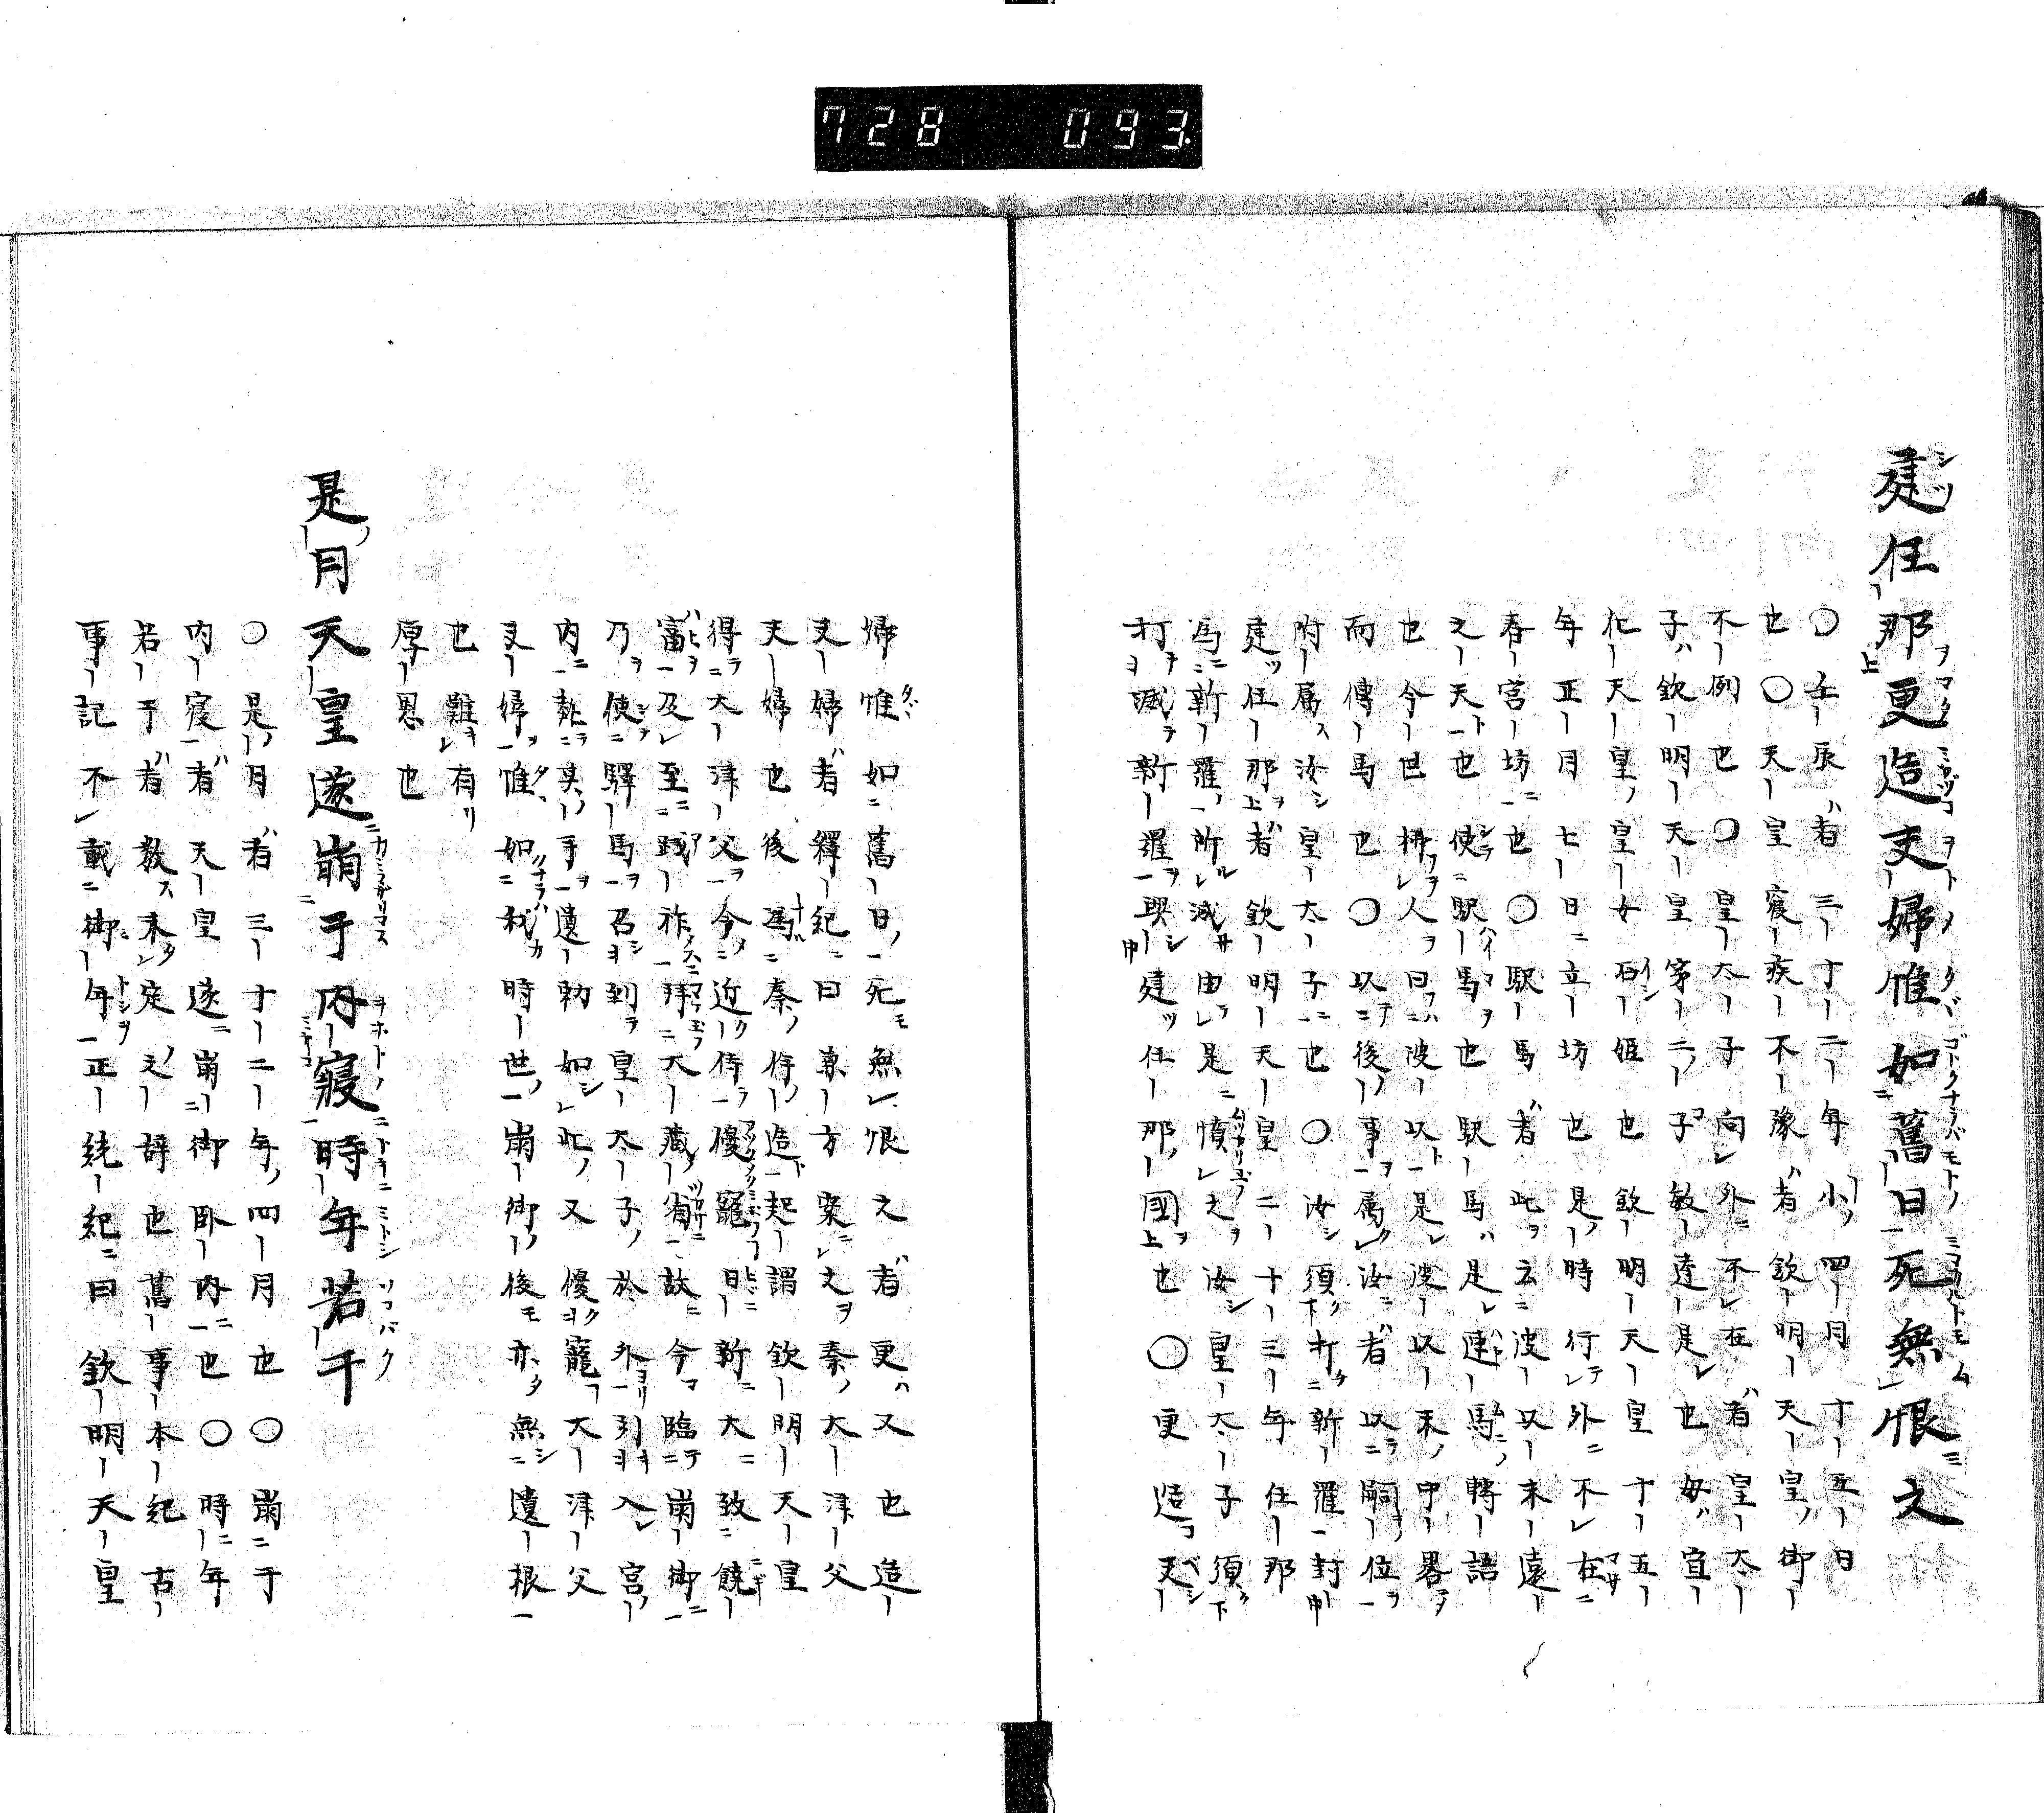 728 093
建任那更造夫婦惟如舊日死無恨之
〇壬辰者三十二年小四月十五日
也〇天皇寝疾不豫者欽明天皇御
不例也〇皇太子向外不在者皇太
子欽明天皇第二子敏達是也母宣
化天皇皇女石姫也欽明天皇十五
年正月七日立坊也是時行外不在
春宮坊也〇駅馬者此云波以末遠
之天也使駅馬也駅馬是連馬轉語
也今世稱人曰波以是波以末中畧
而傳馬也〇以後事属汝者以嗣位
附属汝皇太子也〇汝須打新羅封
建任那者欽明天皇二十三年任那
爲新羅所滅由是憤之汝皇太子須
打滅新羅興建任那國也〇更造夫
婦惟如舊日死無恨之者更又也造
夫婦者釋紀曰兼方案之秦大津父
夫婦也後爲秦伴造起謂欽明天皇
得大津父令近侍優寵日新大致饒
富及至踐祚拜大藏省故今臨崩御
乃使驛馬召到皇太子於外引入宮
内執其手遺勅如此又優寵大津父
夫婦惟如我時世崩御後亦無遺根
也難有
厚恩也
是月天皇遂崩于内寝時年若干
〇是月者三十二年四月也〇崩于
内寝者天皇遂崩御臥内也〇時年
若干者数未定之辞也舊事本紀古
事記不載御年正統紀曰欽明天皇